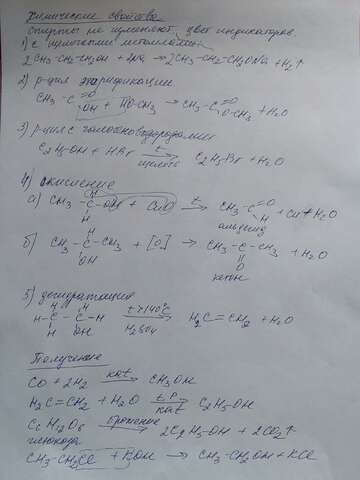 Химические свойства
Спирты не изменяют цвет индикаторов.
1) с щелочными металлами
2CH₃-CH₂-CH₂OH + 2Na → 2CH₃-CH₂-CH₂ONa + H₂↑
2) р-ция этерификации
CH₃-C(=O)OH + HO-CH₃ → CH₃-C(=O)O-CH₃ + H₂O
3) р-ция с галогеноводородами
C₂H₅-OH + HBr →(t) C₂H₅Br + H₂O
4) окисление
а) CH₃-C(H)(H)-OH + CuO →(t) CH₃-C(=O)H + Cu + H₂O
альдегид
б) CH₃-C(OH)-CH₃ + [O] → CH₃-C(=O)-CH₃ + H₂O
кетон
5) дегидратация
H-C(H)(H)-C(H)(OH)-H →(t>140°C, H₂SO₄) H₂C=CH₂ + H₂O
Получение
CO + 2H₂ →(кат) CH₃OH
H₂C=CH₂ + H₂O →(t, P, кат) C₂H₅-OH
C₆H₁₂O₆ →(брожение) 2C₂H₅-OH + 2CO₂↑
глюкоза
CH₃-CH₂Cl + KOH → CH₃-CH₂OH + KCl